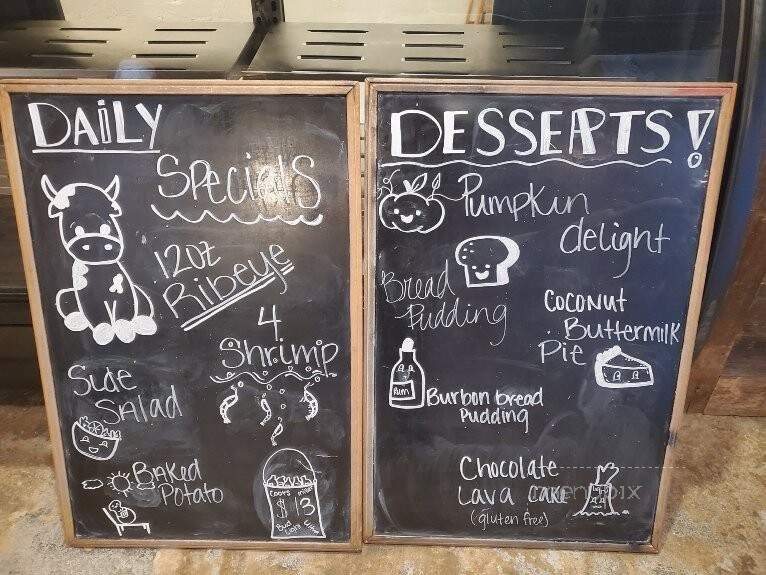 DAiLY
SPeciaLS
12oz
Ribeye
4
Shrimp
Side
SALAD
BAKED
Potato
Coors
$13
Bud
Light
DESSERTS!
Pumpkin
delight
Bread
Pudding
COCONUT
Buttermilk
Pie
Rum
Burbon bread
Pudding
Chocolate
LAVA CAKE
(gluten free)